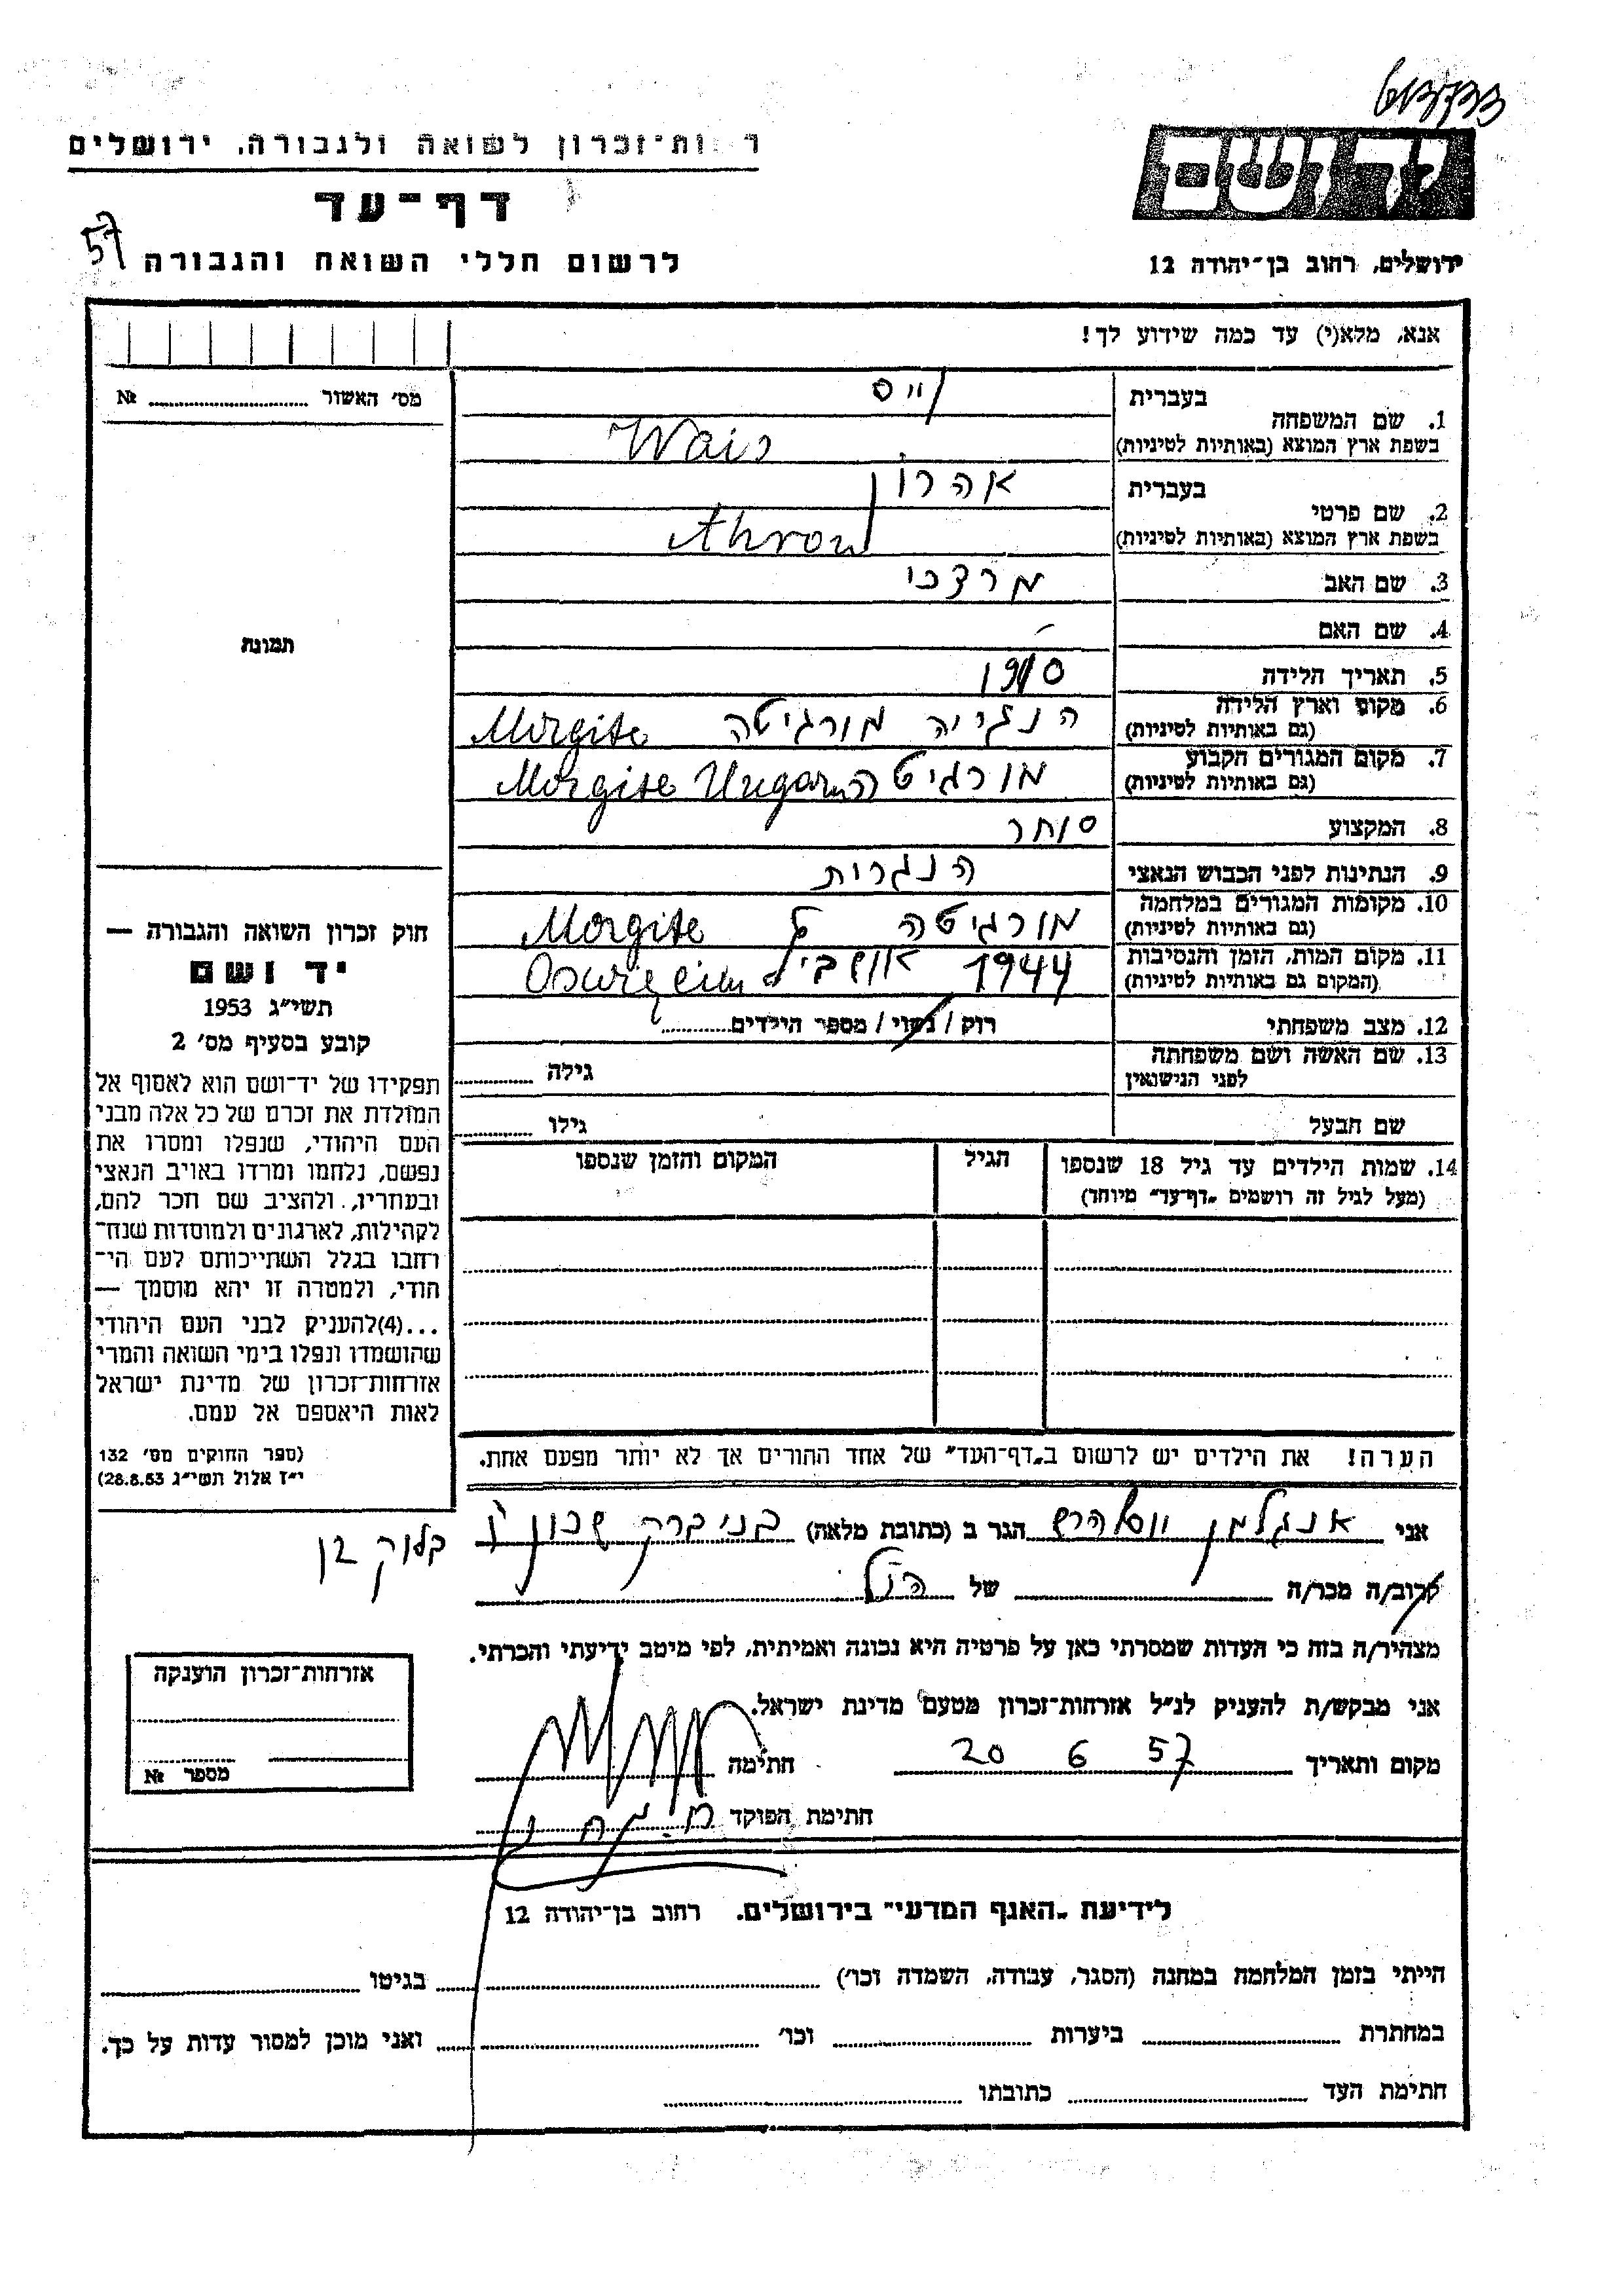 ר ות־זכרון לשואה ולגבורה. ירושלים
דף־עד
לרשום חללי השואה והגבורה
57
ידושם
ירושלים, רחוב בן־יהודה 12
אנא, מלא(י) עד כמה שידוע לך!
מס׳ האשור № 
1. שם המשפחה
בעברית
ווייס
בשפת ארץ המוצא (באותיות לטיניות)
Wais
2. שם פרטי
בעברית
אהרון
בשפת ארץ המוצא (באותיות לטיניות)
Ahron
3. שם האב מרדכי
4. שם האם -
5. תאריך הלידה 1910
6. מקום וארץ הלידה
(גם באותיות לטיניות)
הנגריה מורגיטה Morgite
7. מקום המגורים הקבוע
(גם באותיות לטיניות)
מורגיטה Morgite Ungarn
8. המקצוע סוחר
9. הנתינות לפני הכבוש הנאצי הנגרית
10. מקומות המגורים במלחמה
(גם באותיות לטיניות)
מורגיטה Morgite
11. מקום המות, הזמן והנסיבות
(המקום גם באותיות לטיניות)
1944
12. מצב משפחתי רוק / נשוי / מספר הילדים
13. שם האשה ושם משפחתה
לפני הנישואין
גילה
שם הבעל גילו
14. שמות הילדים עד גיל 18 שנספו
(מעל לגיל זה רושמים „דף־עד״ מיוחד)
הגיל
המקום והזמן שנספו
הערה! את הילדים יש לרשום ב„דף־העד״ של אחד ההורים אך לא יותר מפעם אחת.
תמונה
חוק זכרון השואה והגבורה —
יד ושם
תשי״ג 1953
קובע בסעיף מס׳ 2
תפקידו של יד־ושם הוא לאסוף אל
המולדת את זכרם של כל אלה מבני
העם היהודי, שנפלו ומסרו את
נפשם, נלחמו ומרדו באויב הנאצי
ובעוזריו, ולהציב שם וזכר להם,
לקהילות, לארגונים ולמוסדות שנח־
רחבו בגלל השתייכותם לעם הי־
הודי, ולמטרה זו יהא מוסמך —
...(4)להעניק לבני העם היהודי
שהושמדו ונפלו בימי השואה והמרי
אזרחות־זכרון של מדינת ישראל
לאות היאספם אל עמם.
(ספר החוקים מס׳ 132
י״ז אלול תשי״ג 28.8.53)
אני אנגלמן הגר ב (כתובת מלאה) בני ברק שכון
קרוב/ה מכר/ה של הנ״ל
מצהיר/ה בזה כי העדות שמסרתי כאן על פרטיה היא נכונה ואמיתית, לפי מיטב ידיעתי והכרתי.
אני מבקש/ת להעניק לנ״ל אזרחות־זכרון מטעם מדינת ישראל.
מקום ותאריך 20 6 57 חתימה
חתימת הפוקד
אזרחות־זכרון הוענקה
מספר №
לידיעת „האגף המדעי״ בירושלים. רחוב בן־יהודה 12
הייתי בזמן המלחמה במחנה (הסגר, עבודה, השמדה וכו׳) בגיטו
במחתרת ביערות וכו׳ ואני מוכן למסור עדות על כך.
חתימת העד כתובתו